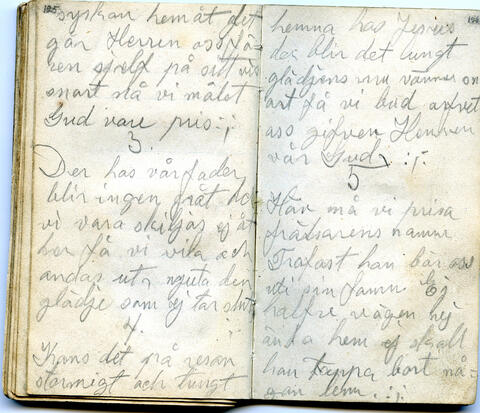 195.
syskon hemåt det
går Herren oss fö-
ren sjelf på sitt vis
snart nå vi målet
Gud vare pris :;:
3.
Der hos vår fader
blir ingen fråt
vi vara skiljas ej åt
her få vi vila och
andas ut, njuta den
glädje som ej tar slut
4.
Käns det på resan
stormigt och tungt
196
hemma hos Jesus
der blir det lungt
glädjens nu vänner sn
art få vi bud arfvet
oss gifven Herren
vår Gud. :;:
5
Här må vi prisa
frälsarens namn
Trofast han bär oss
uti sin famn Ej
halfre vägen nej
ända hem ej skall
han tappa bort nå-
gon lem :;: